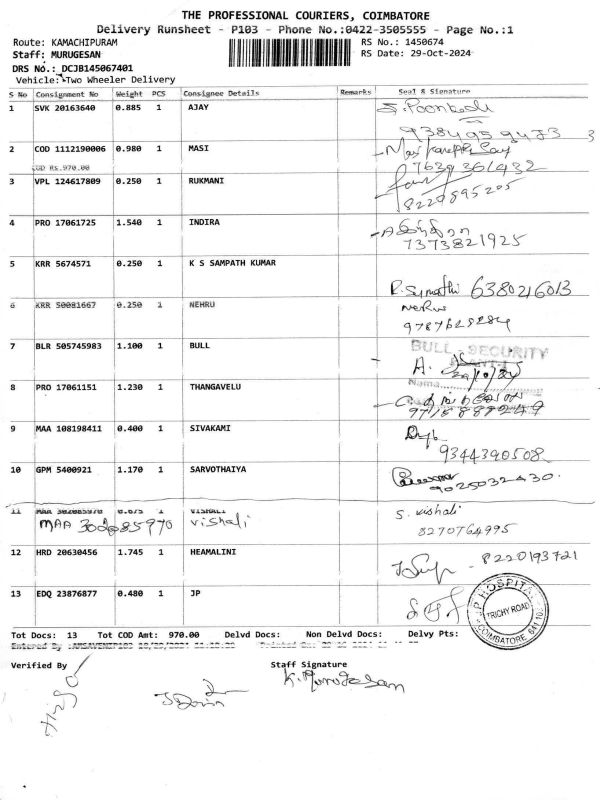 THE PROFESSIONAL COURIERS, COIMBATORE
Delivery Runsheet - P103 - Phone No.:0422-3505555 - Page No.:1
Route: KAMACHIPURAM RS No.: 1450674
Staff: MURUGESAN RS Date: 29-Oct-2024
DRS No.: DCJB145067401
Vehicle: Two Wheeler Delivery
S No Consignment No Weight PCS Consignee Details Remarks Seal & Signature
1 SVK 20163640 0.885 1 AJAY
2 COD 1112190006 0.980 1 MASI
COD Rs.970.00 7639361432
3 VPL 124617809 0.250 1 RUKMANI
8220595205
4 PRO 17061725 1.540 1 INDIRA
7373821925
5 KRR 5674571 0.250 1 K S SAMPATH KUMAR
6380216013
6 KRR 50081667 0.250 1 NEHRU
7 BLR 505745983 1.100 1 BULL BULL SECURITY
A.
29/10/24
Name
8 PRO 17061151 1.230 1 THANGAVELU
9 MAA 108198411 0.400 1 SIVAKAMI
9344390508
10 GPM 5400921 1.170 1 SARVOTHAIYA
9025032430
11 MAA 302085970 0.675 1 VISHALI S. vishali
MAA 302085970 vishali 8270764995
12 HRD 20630456 1.745 1 HEAMALINI 8220193721
13 EDQ 23876877 0.480 1 JP
JP HOSPITAL
TRICHY ROAD
COIMBATORE
Tot Docs: 13 Tot COD Amt: 970.00 Delvd Docs: Non Delvd Docs: Delvy Pts:
Entered By
Verified By Staff Signature
K. Murugesan